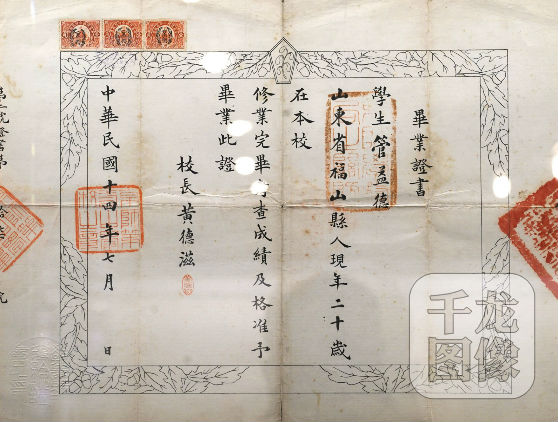 畢業證書
學生管益德
山東省福山縣人現年二十歲
在本校
修業完畢 查成績及格准予
畢業此證
校長黃德滋
中華民國十四年七月 日
千龙
图像